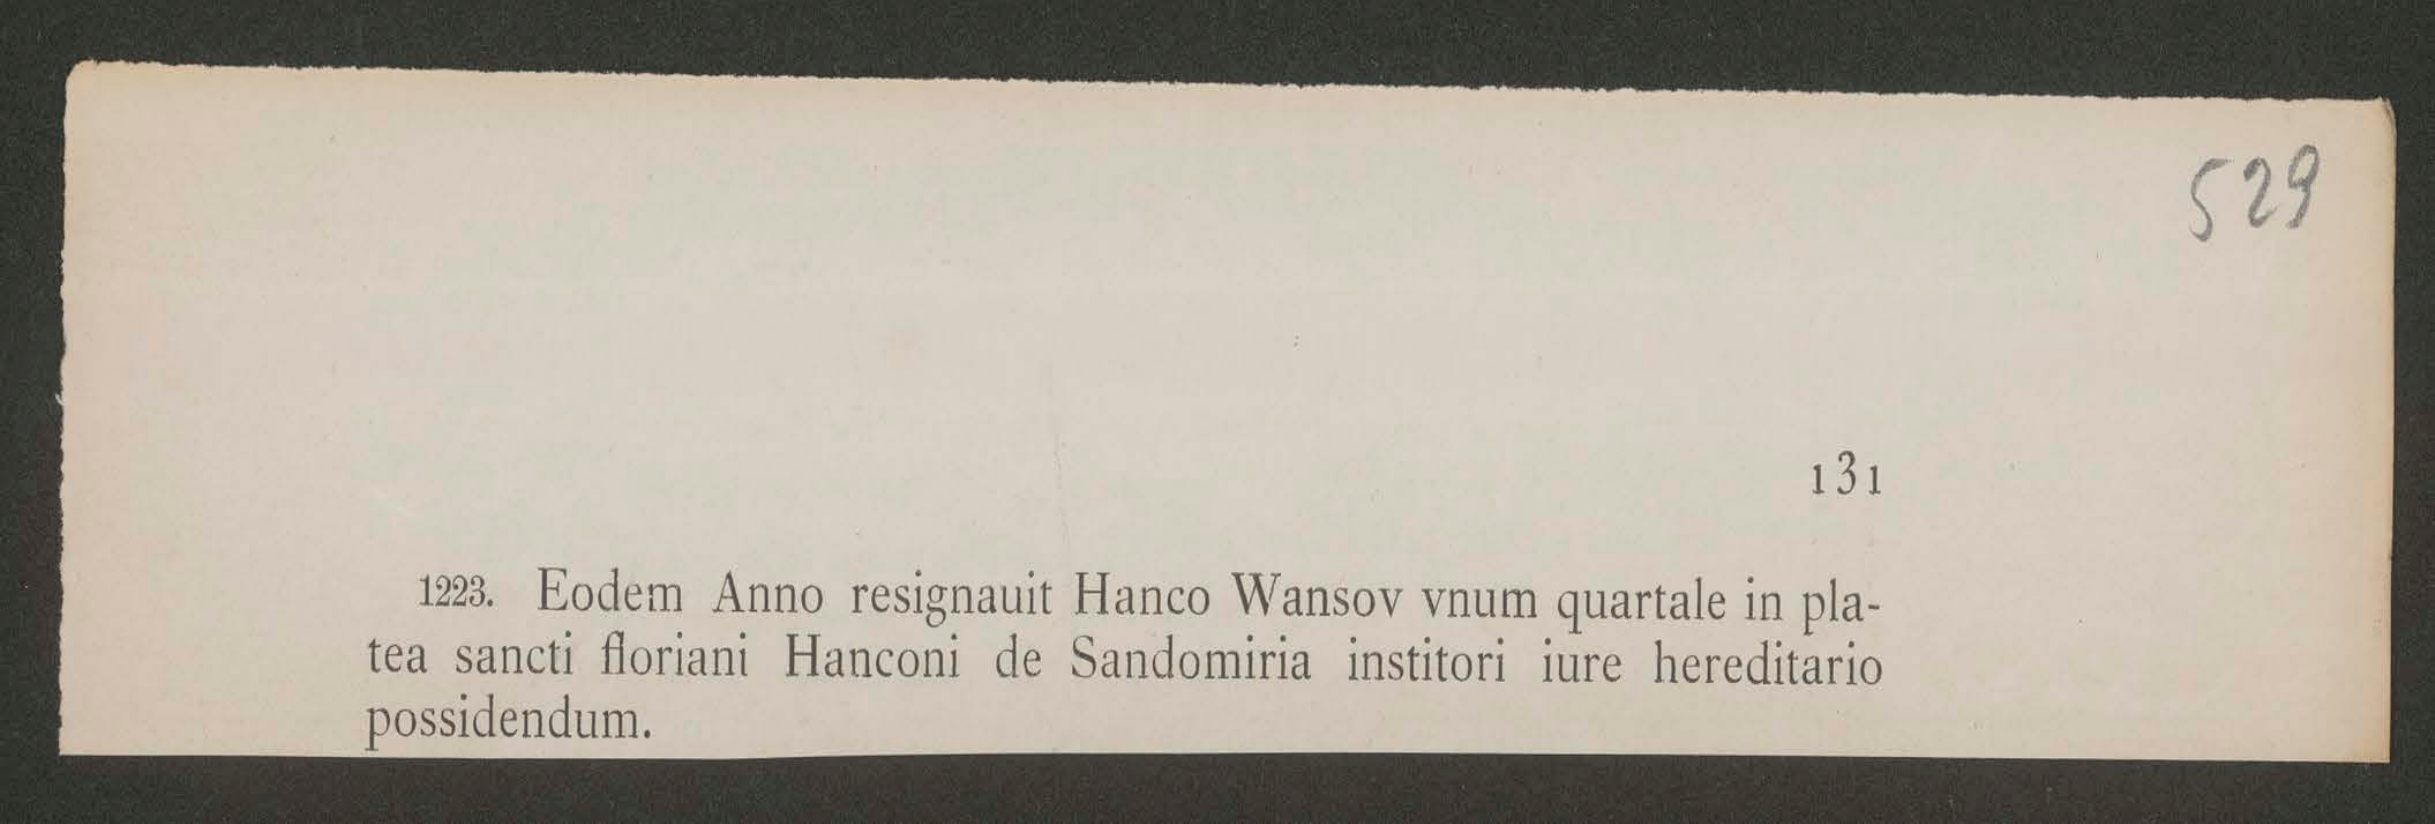 529
131
1223. Eodem Anno resignauit Hanco Wansov vnum quartale in pla-
tea sancti floriani Hanconi de Sandomiria institori iure hereditario
possidendum.